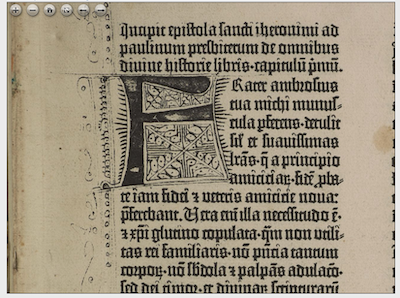 Inquipit epistola sancti iheronimi ad
paulinum presbiterum de omnibus
divine historie libris· capitulū pⁱmū.
F Rater ambrosius
tua michi munus-
cula pferens· detulit
siꝉ et suavissimas
lrās· q̄ a principio
amiciciaꝝ· fidē pba-
te iam fidei ⁊ veteris amicicie nova:
pferebant. Vera eni illa necessitudo ē·
⁊ xp̄i glutino copulata· qm̄ non utili-
tas rei familiaris· nō pn̄cia tantum
corpoꝝ· nō sb̄dola ⁊ palpās adulacō·
sed dei timor· et divinaꝝ scripturaꝝ